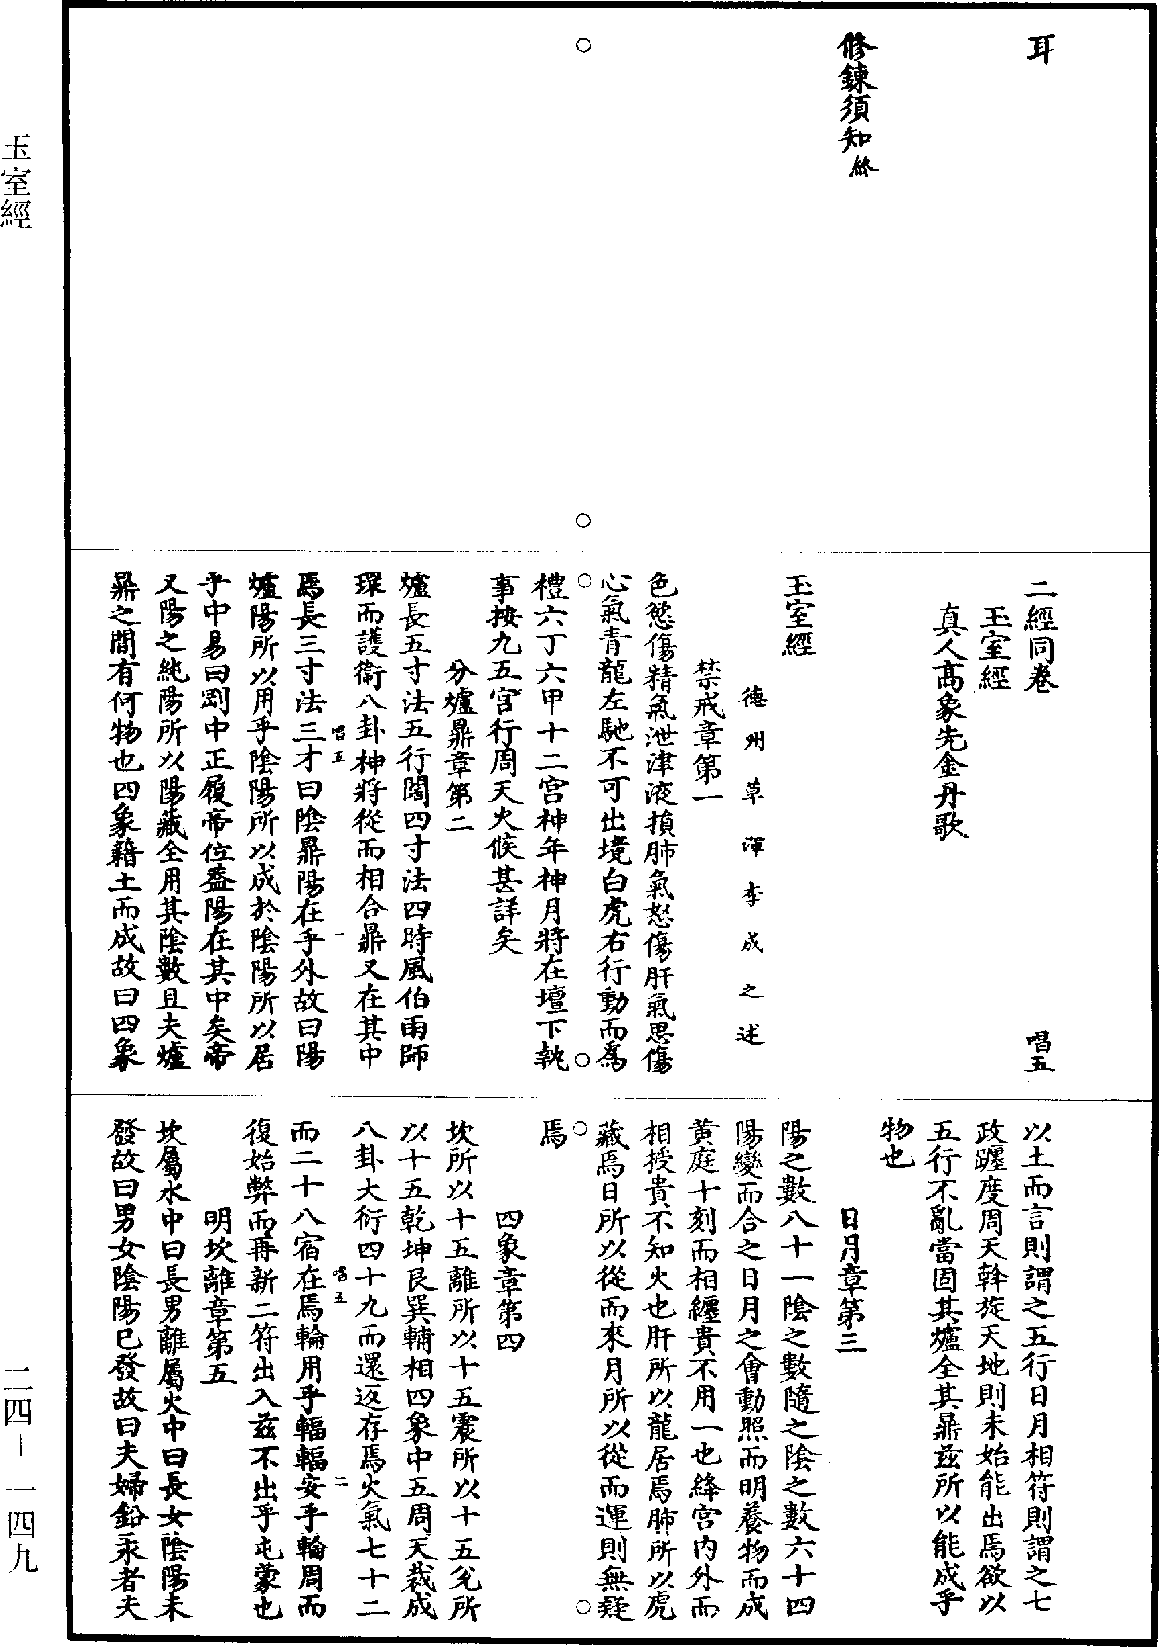 耳
修鍊須知終
二經同卷
唱五
玉室經
真人高象先金丹歌
玉室經
德州草澤李成之述
禁戒章第一
色慾傷精氣泄津液損肺氣怒傷肝氣思傷
心氣青龍左馳不可出境白虎右行動而為
禮六丁六甲十二宮神年神月將在壇下執
事按九五宮行周天火候甚詳矣
分爐鼎章第二
爐長五寸法五行闊四寸法四時風伯雨師
環而護衛八卦神將從而相合鼎又在其中
唱五
一
焉長三寸法三才曰陰鼎陽在乎外故曰陽
爐陽所以用乎陰陽所以成於陰陽所以居
乎中易曰剛中正履帝位蓋陽在其中矣帝
又陽之純陽所以陽藏全用其陰數且夫爐
鼎之間有何物也四象藉土而成故曰四象
以土而言則謂之五行日月相符則謂之七
政躔度周天斡旋天地則未始能出焉欲以
五行不亂當固其爐全其鼎茲所以能成乎
物也
日月章第三
陽之數八十一陰之數隨之陰之數六十四
陽變而合之日月之會動照而明養物而成
黃庭十刻而相纏貴不用一也絳宮內外而
相授貴不知火也肝所以龍居焉肺所以虎
藏焉日所以從而來月所以從而運則無疑
焉
四象章第四
坎所以十五離所以十五震所以十五兌所
以十五乾坤艮巽輔相四象中五周天裁成
八卦大衍四十九而還返存焉火氣七十二
唱五
二
而二十八宿在焉輪用乎輻輻安乎輪周而
復始弊而再新二符出入茲不出乎屯蒙也
明坎離章第五
坎屬水中曰長男離屬火中曰長女陰陽未
發故曰男女陰陽已發故曰夫婦鉛汞者夫
玉室經
二四－一四九